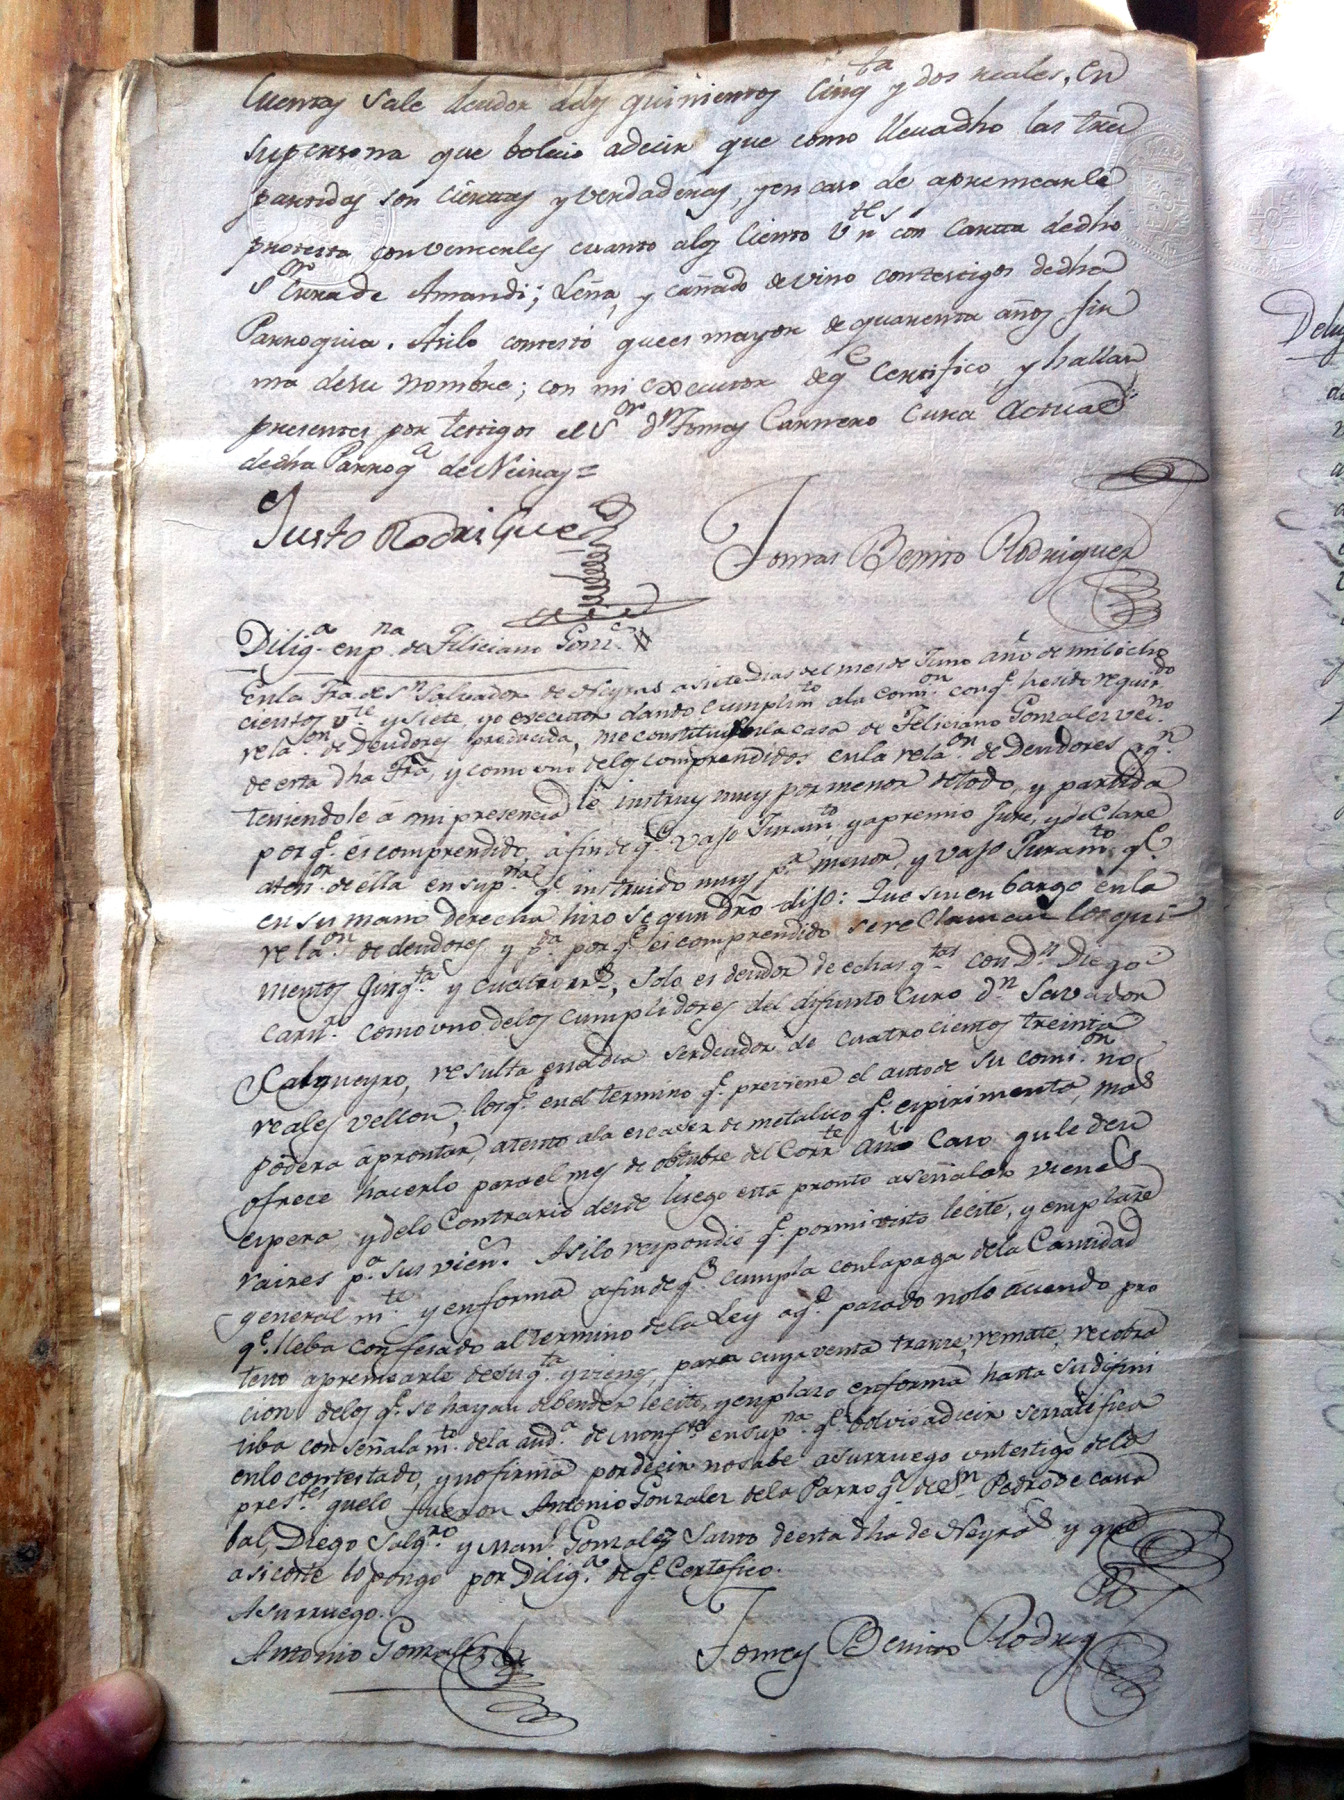 Cuentas sale deudor delos quinientos Cinq.ta y dos reales, en
supersona que bolvio adecir que como llevadho las tres
partidas son ciertas y verdaderas, yen caso de apremearle
protesta convencerles cuanto alos Ciento V.tes con Carta dedho
S.or Cura de Amandi; Leña, y cañado de vino contestigos dedha
Parroquia. Asilo contestó quees mayor de quarenta años fir
ma desu nombre; con mi executor deq.e Certifico, y hallar
presentes por testigos el S.or d.n Tomas Carnero Cura Actual
dedha Parroq.a de Neiras=
Justo Rodriguez
Tomas Benito Rodriguez
Dilig.a enp.na de Feliciano Gonz.z
Enla Fra. de S.n Salvador de Neyras asiete dias del mes de Juno año de mil ócho
cientos v.te y siete, yo executor dando cumplim.to ala comi.on conq.e he sido requirdo
rela.on de Deudores producida, me constitui enla casa de Feliciano Gonzalez vec.no
de esta dha Fra, y como uno delos comprendidos enla rela.on de Deudores aq.n
teniendole á mi presencia le instruy muy por menor detodo, y partida
porq.e es comprendido, afin deq.e vajo Juram.to yapremio Jure, y declare
aten.on de élla ensup.na q.e instruido muy p.r menor, y vajo Juram.to q.e
ensu mano derecha hizo segun dro dijo: Que sin en bargo enla
rela.on de deudores y p.da por q.e es comprendido sele reclaman los qui
nientos Cinq.ta y cuatro rr.s, solo es deudor de echas q.tas con D.n Diego
Carn.o como uno delos cumplidores del difunto Cura d.n Savador
Salgueyro, resulta eneldia serdeudor de cuatrocientos treinta
reales vellon, losq.e enel termino q.e previene el auto de su comi.on no
podera áprontar, atento ala escases de metalico q.e espirimenta, mas
ofrece hacerlo parael mes de octubre del Corr.te año Caso quele den
espera, ydelo Contrario desde luego está pronto aseñalar vienes
raises p.a sus vien.s Asilo respondió q.e pormi visto lecité, y emplacé
general m.te y enforma afin deq.e cumpla conlapaga dela Cantidad
q.e lleba confesado al termino dela Ley aq.e pasado nolo áciendo pro
testo apremiarle desuq.ta yvienes, para cuya venta tranze, remate, recobra
cion delos q.e se hayan debender lecito, yemplazo enforma hasta sudifini
tiba con señalam.to dela aud.a de Monf.te ensup.na q.e bolvio adecir serratifica
enlo contestado, ynofirma pordecir nosabe asurruego untestigo delos
pres.tes quelo fueron Antonio Gonzalez dela Parroq.a de S.n Pedro de Cana
bal, Diego Salg.ro y Man.l Gonzalez Santo deesta dha de Neyras y que
asi coste lo pongo por Dilig.a deq.e Certifico.
Asurruego.
Antonio Gonzalez
Tomas Benito Rodrig